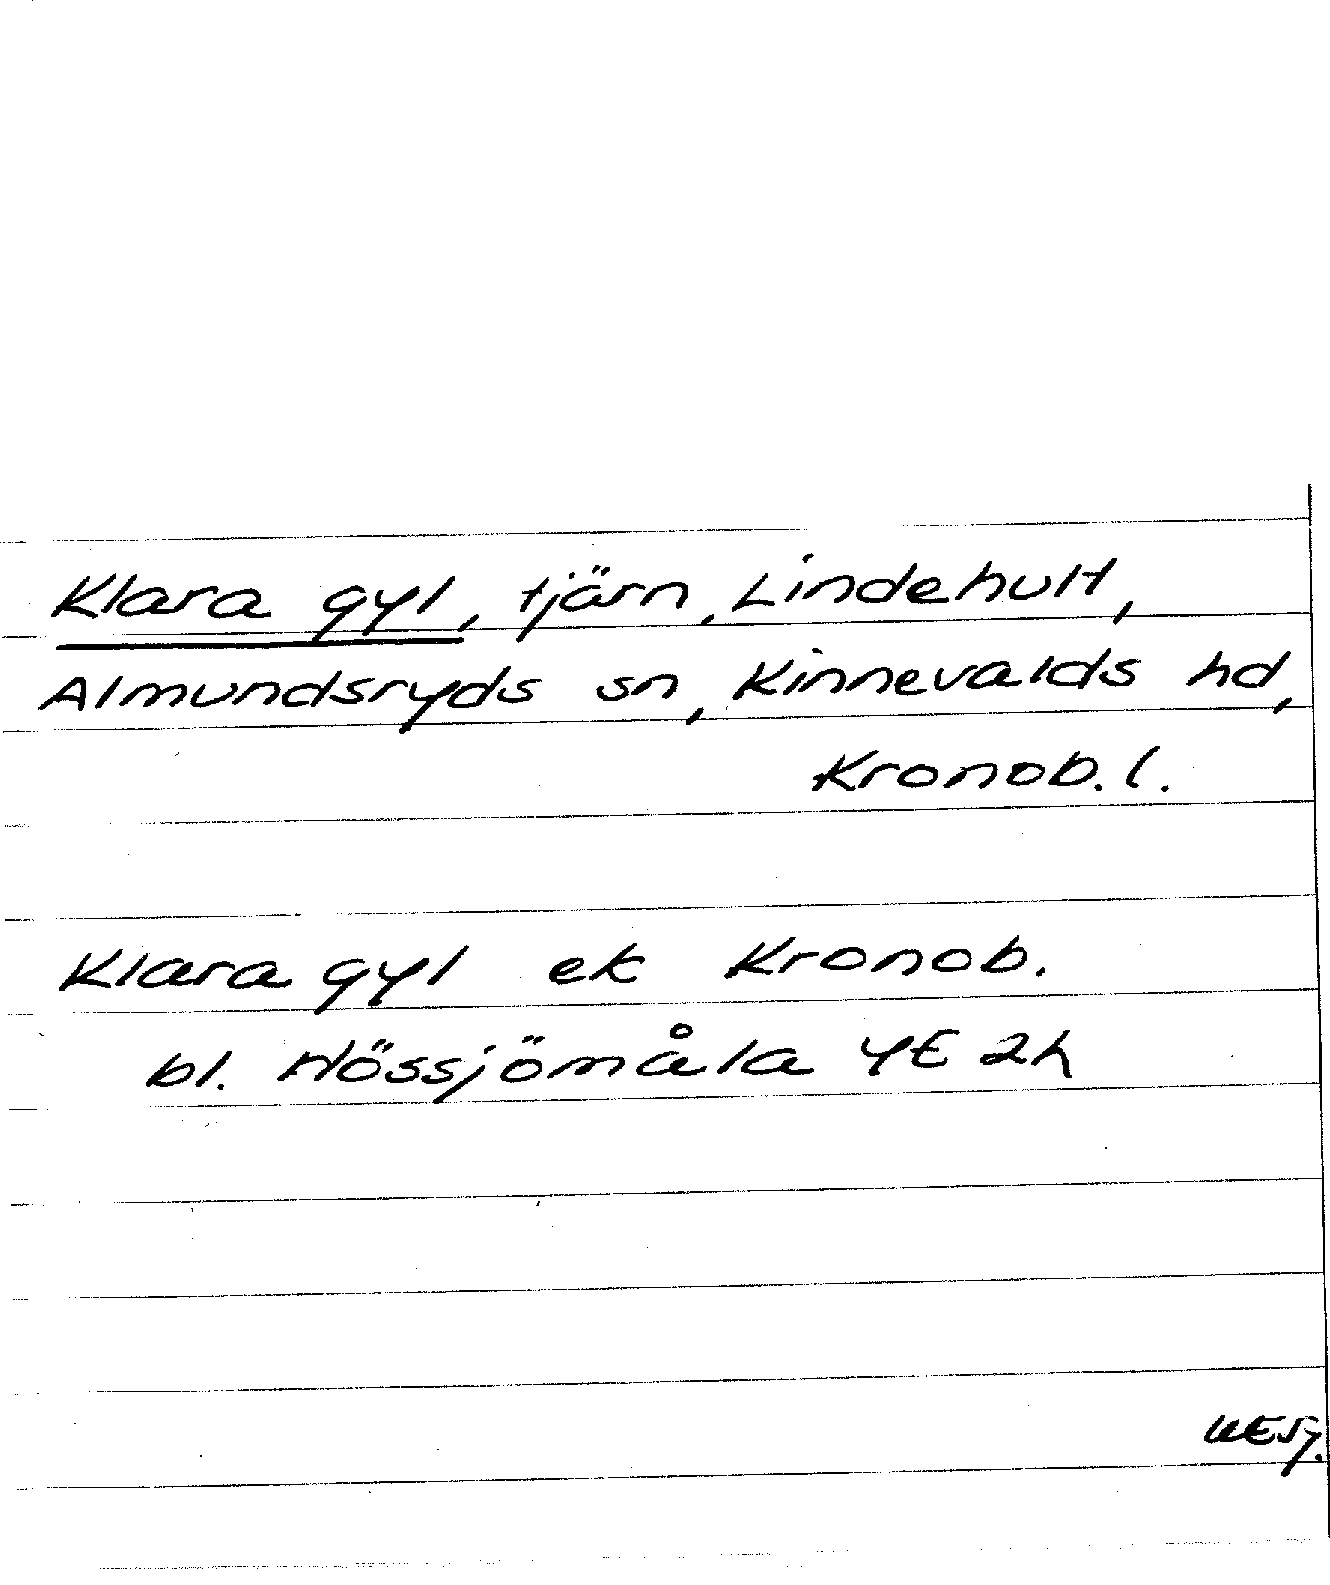 Klara gyl, tjärn, Lindehult,
Almundsryds sn, Kinnevalds hd,
Kronob. l.
Klara gyl ek Kronob.
bl. Hössjömåla 4E 2h